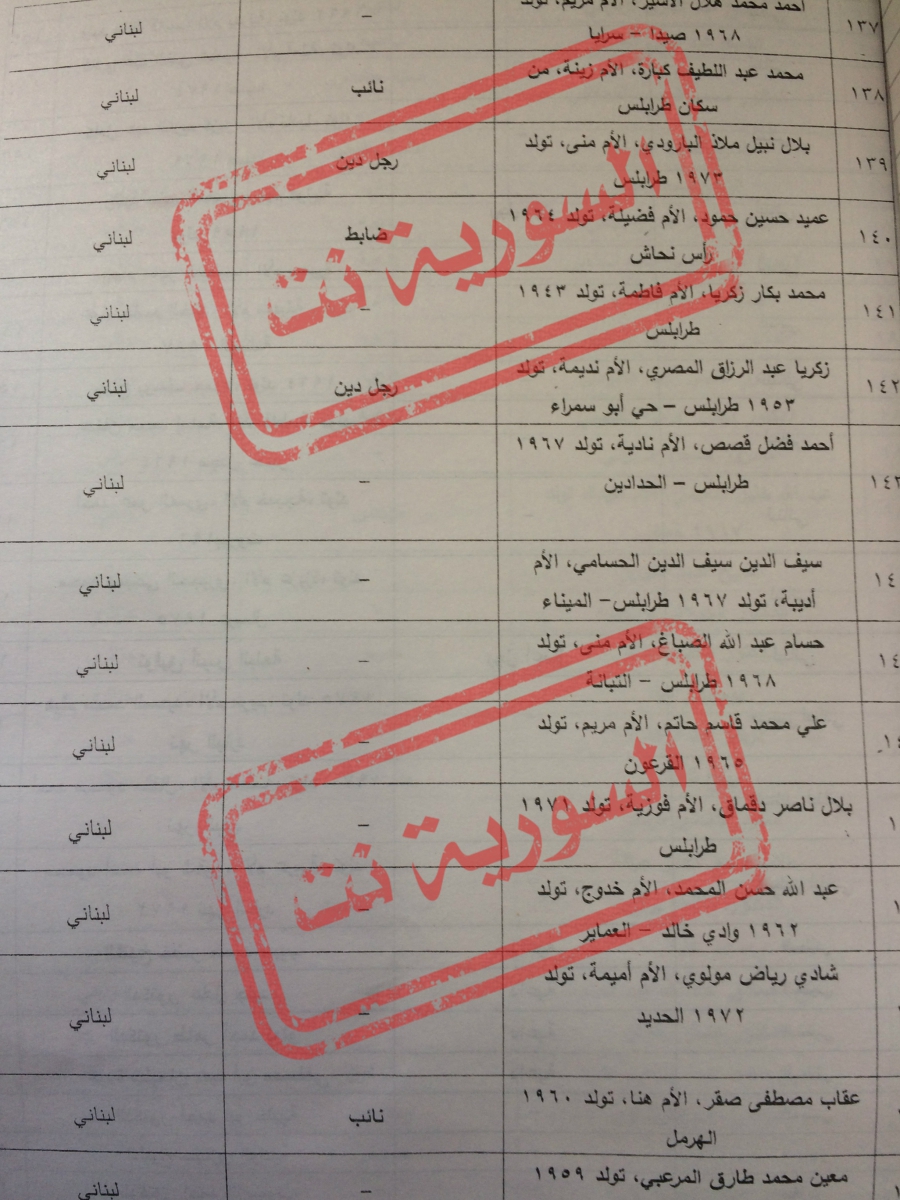 ١٣٧ أحمد محمد هلال الأسير، الأم مريم، تولد – لبناني
١٩٦٨ صيدا – سرايا
١٣٨ محمد عبد اللطيف كبارة، الأم زينة، من نائب لبناني
سكان طرابلس
١٣٩ بلال نبيل ملاذ البارودي، الأم منى، تولد رجل دين لبناني
١٩٧٣ طرابلس
١٤٠ عميد حسين حمود، الأم فضيلة، تولد ١٩٦٤ ضابط لبناني
رأس نحاش
١٤١ محمد بكار زكريا، الأم فاطمة، تولد ١٩٤٣ – لبناني
طرابلس
١٤٢ زكريا عبد الرزاق المصري، الأم نديمة، تولد رجل دين لبناني
١٩٥٣ طرابلس – حي أبو سمراء
أحمد فضل قصص، الأم نادية، تولد ١٩٦٧ – لبناني
طرابلس – الحدادين
سيف الدين سيف الدين الحسامي، الأم – لبناني
أديبة، تولد ١٩٦٧ طرابلس– الميناء
حسام عبد الله الصباغ، الأم منى، تولد – لبناني
١٩٦٨ طرابلس – التبانة
علي محمد قاسم حاتم، الأم مريم، تولد – لبناني
١٩٦٥ القرعون
بلال ناصر دقماق، الأم فوزية، تولد ١٩٧١ – لبناني
طرابلس
عبد الله حسن المحمد، الأم خدوج، تولد – لبناني
١٩٦٢ وادي خالد – العماير
شادي رياض مولوي، الأم أميمة، تولد – لبناني
١٩٧٢ الحديد
عقاب مصطفى صقر، الأم هنا، تولد ١٩٦٠ نائب لبناني
الهرمل
معين محمد طارق المرعبي، تولد ١٩٥٩ – لبناني
السورية نت
السورية نت